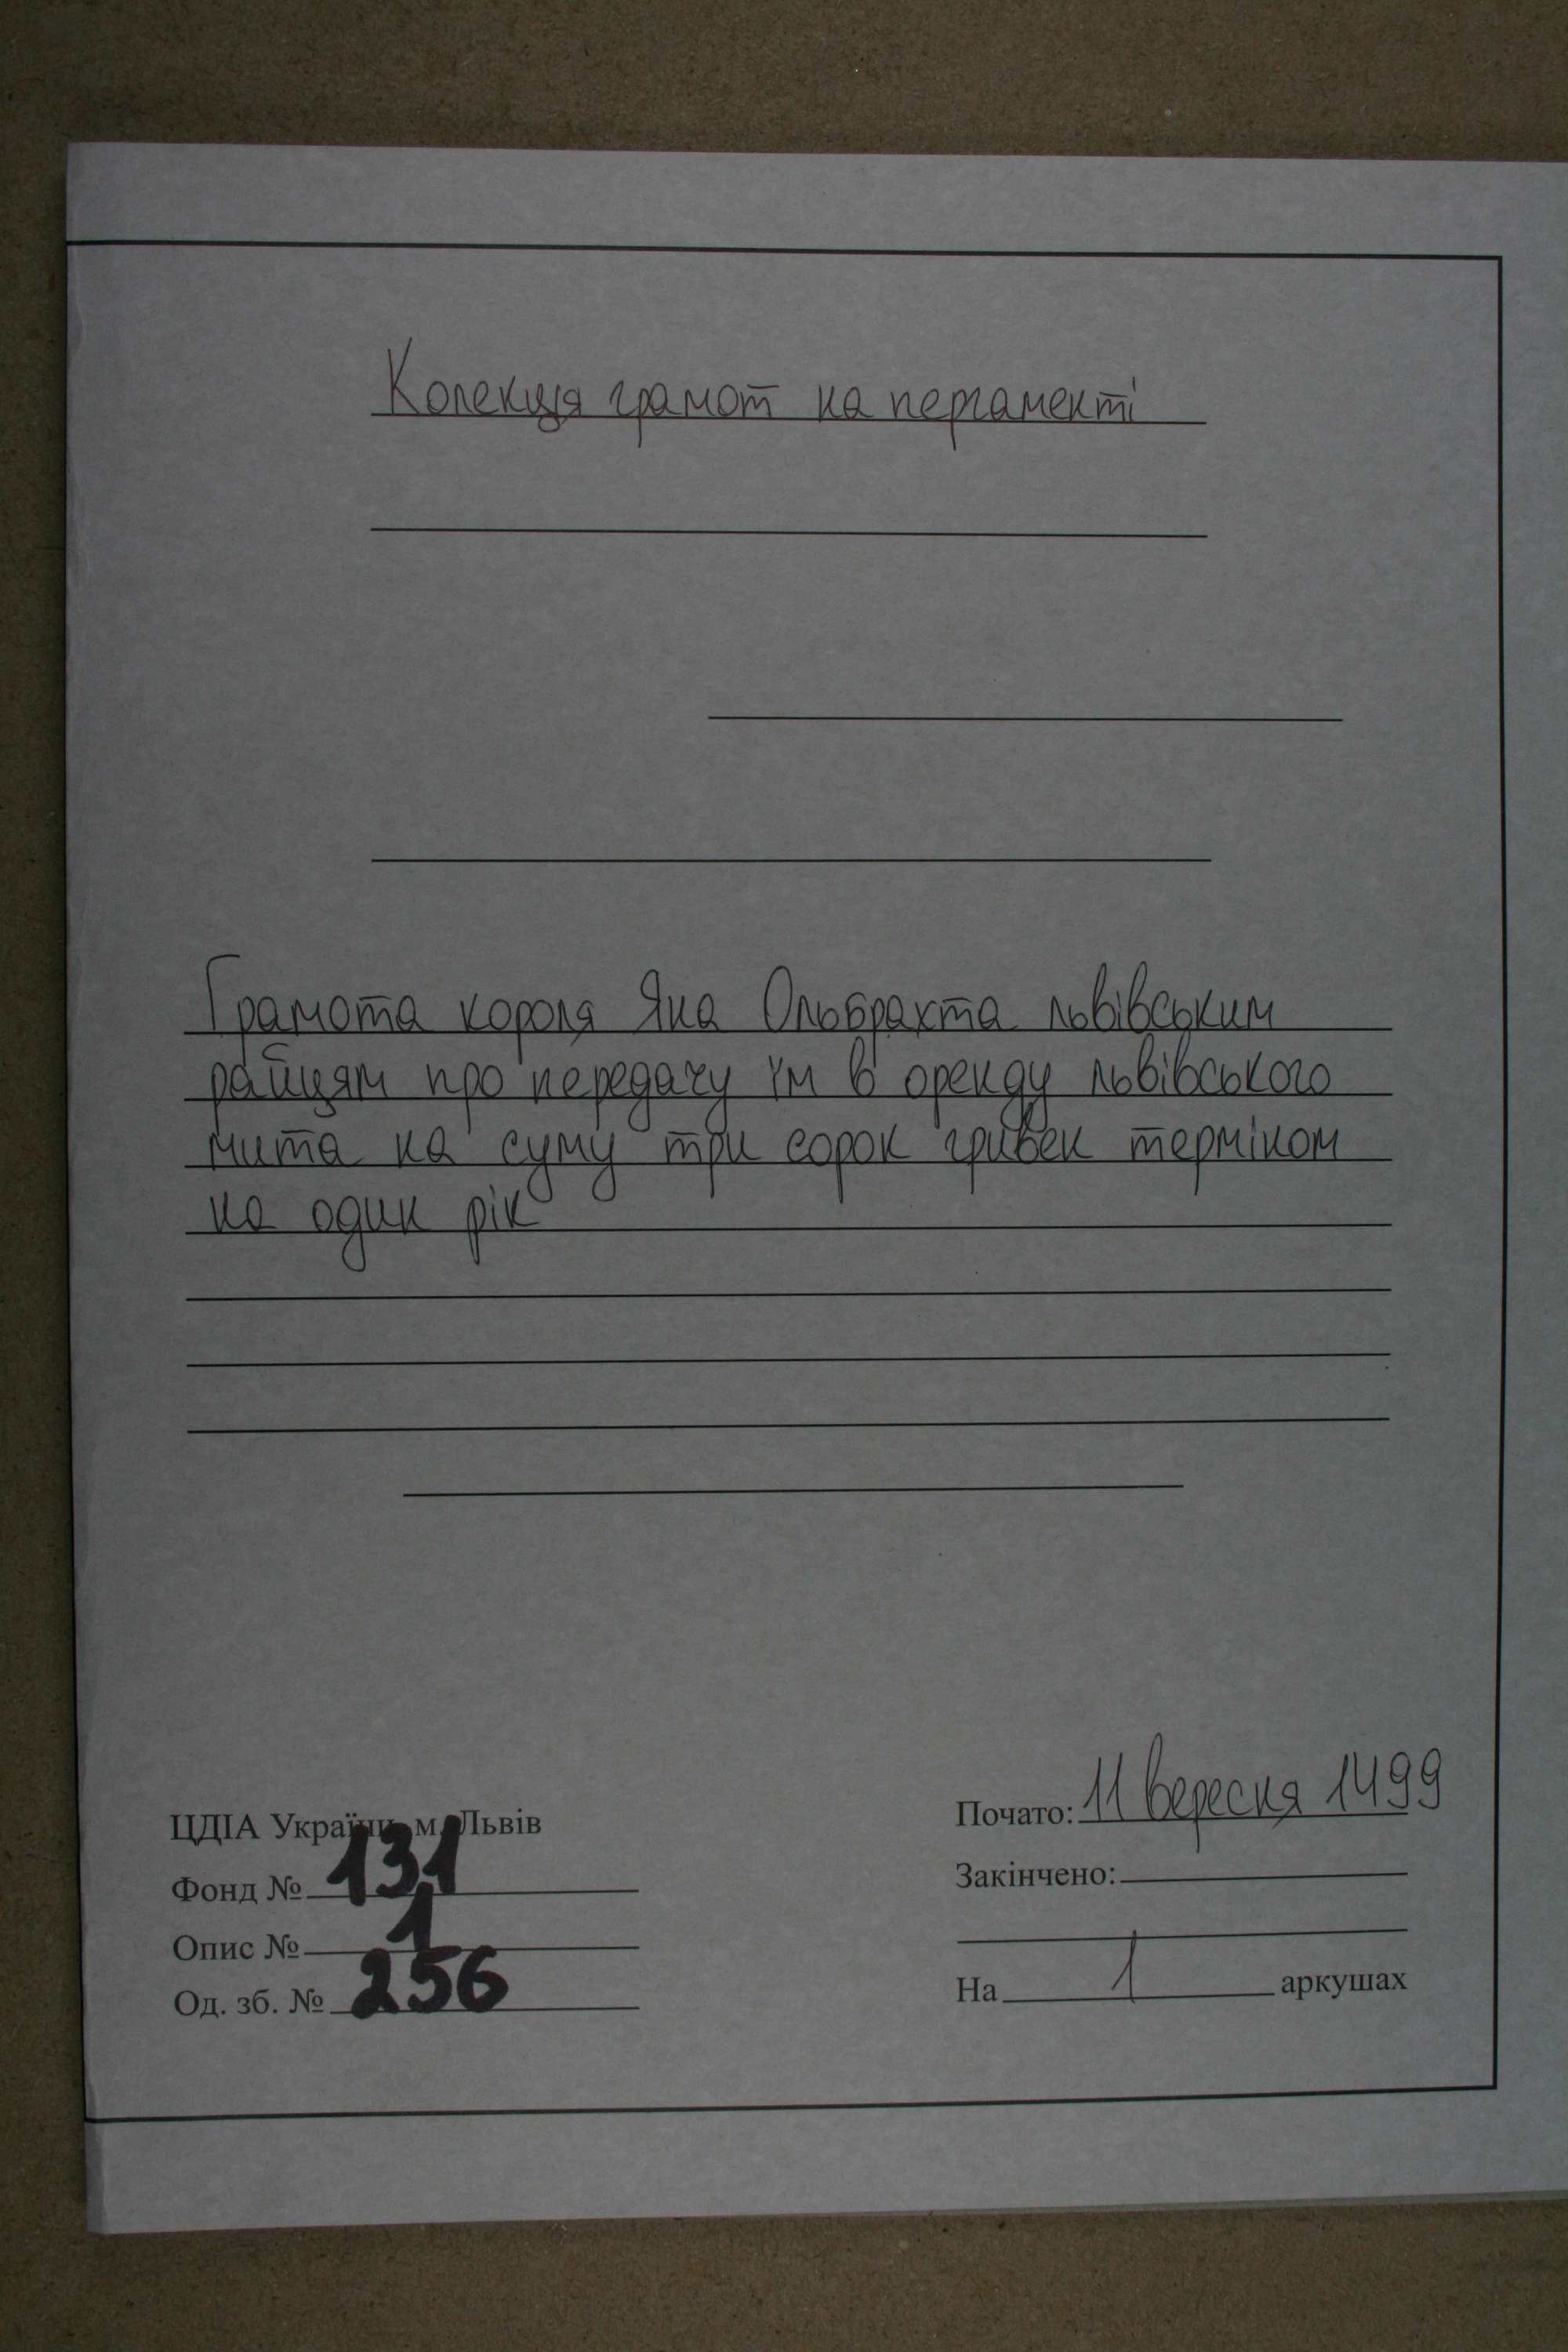 Колекція грамот на пергаменті
Грамота короля Яна Ольбрахта львівським
райцям про передачу їм в оренду львівського
мита на суму три сорок гривен терміном
на один рік
ЦДІА України, м. Львів
Фонд № 131
Опис № 1
Од. зб. № 256
Почато: 11 вересня 1499
Закінчено:
На 1 аркушах